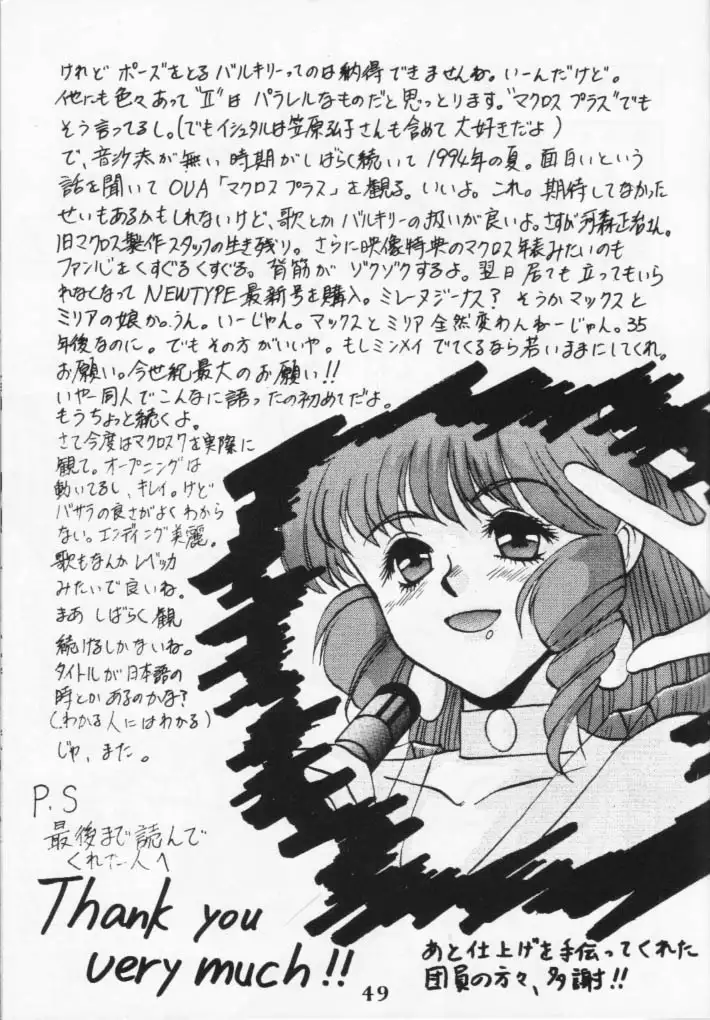 けれど ポーズをとる バルキリーってのは納得できませんね。いーんだけど。
他にも色々あって"Ⅱ"は パラレルなものだと思っとります。"マクロスプラス"でも
そう言ってるし。(でもイシュタルは笠原弘子さんも含めて大好きだよ)
で、音沙汰が無い時期がしばらく続いて1994年の夏。面白いという
話を聞いて OVA「マクロスプラス」を観る。いいよ。これ。期待してなかった
せいもあるかもしれないけど、歌とか バルキリーの扱いが良いよ。さすが河森正治さん。
旧マクロス製作スタッフの生き残り。さらに映像特典のマクロス年表みたいのも
ファン心をくすぐるくすぐる。背筋が ゾクゾクするよ。翌日居ても立ってもいら
れなくなって NEWTYPE最新号を購入。ミレーヌジーナス？そうかマックスと
ミリアの娘か。うん。いーじゃん。マックスとミリア全然変わんねーじゃん。35
年後なのに。でもその方がいいや。もしミンメイ でてくるなら若いままにしてくれ。
お願い。今世紀最大のお願い!!
いやー同人でこんなに語ったの初めてだよ。
もうちょっと続くよ。
さて今度はマクロス7を実際に
観て。オープニングは
動いてるし、キレイ。けど
バサラの良さがよくわから
ない。エンディング美麗。
歌もなんかレベッカ
みたいで良いね。
まあ しばらく観
続けるしかないね。
タイトルが日本語の
時とかあるのかな？
(わかる人にはわかる)
じゃ、また。
P.S
最後まで読んで
くれた人へ
Thank you
very much!!
あと仕上げを手伝ってくれた
団員の方々、多謝!!
49